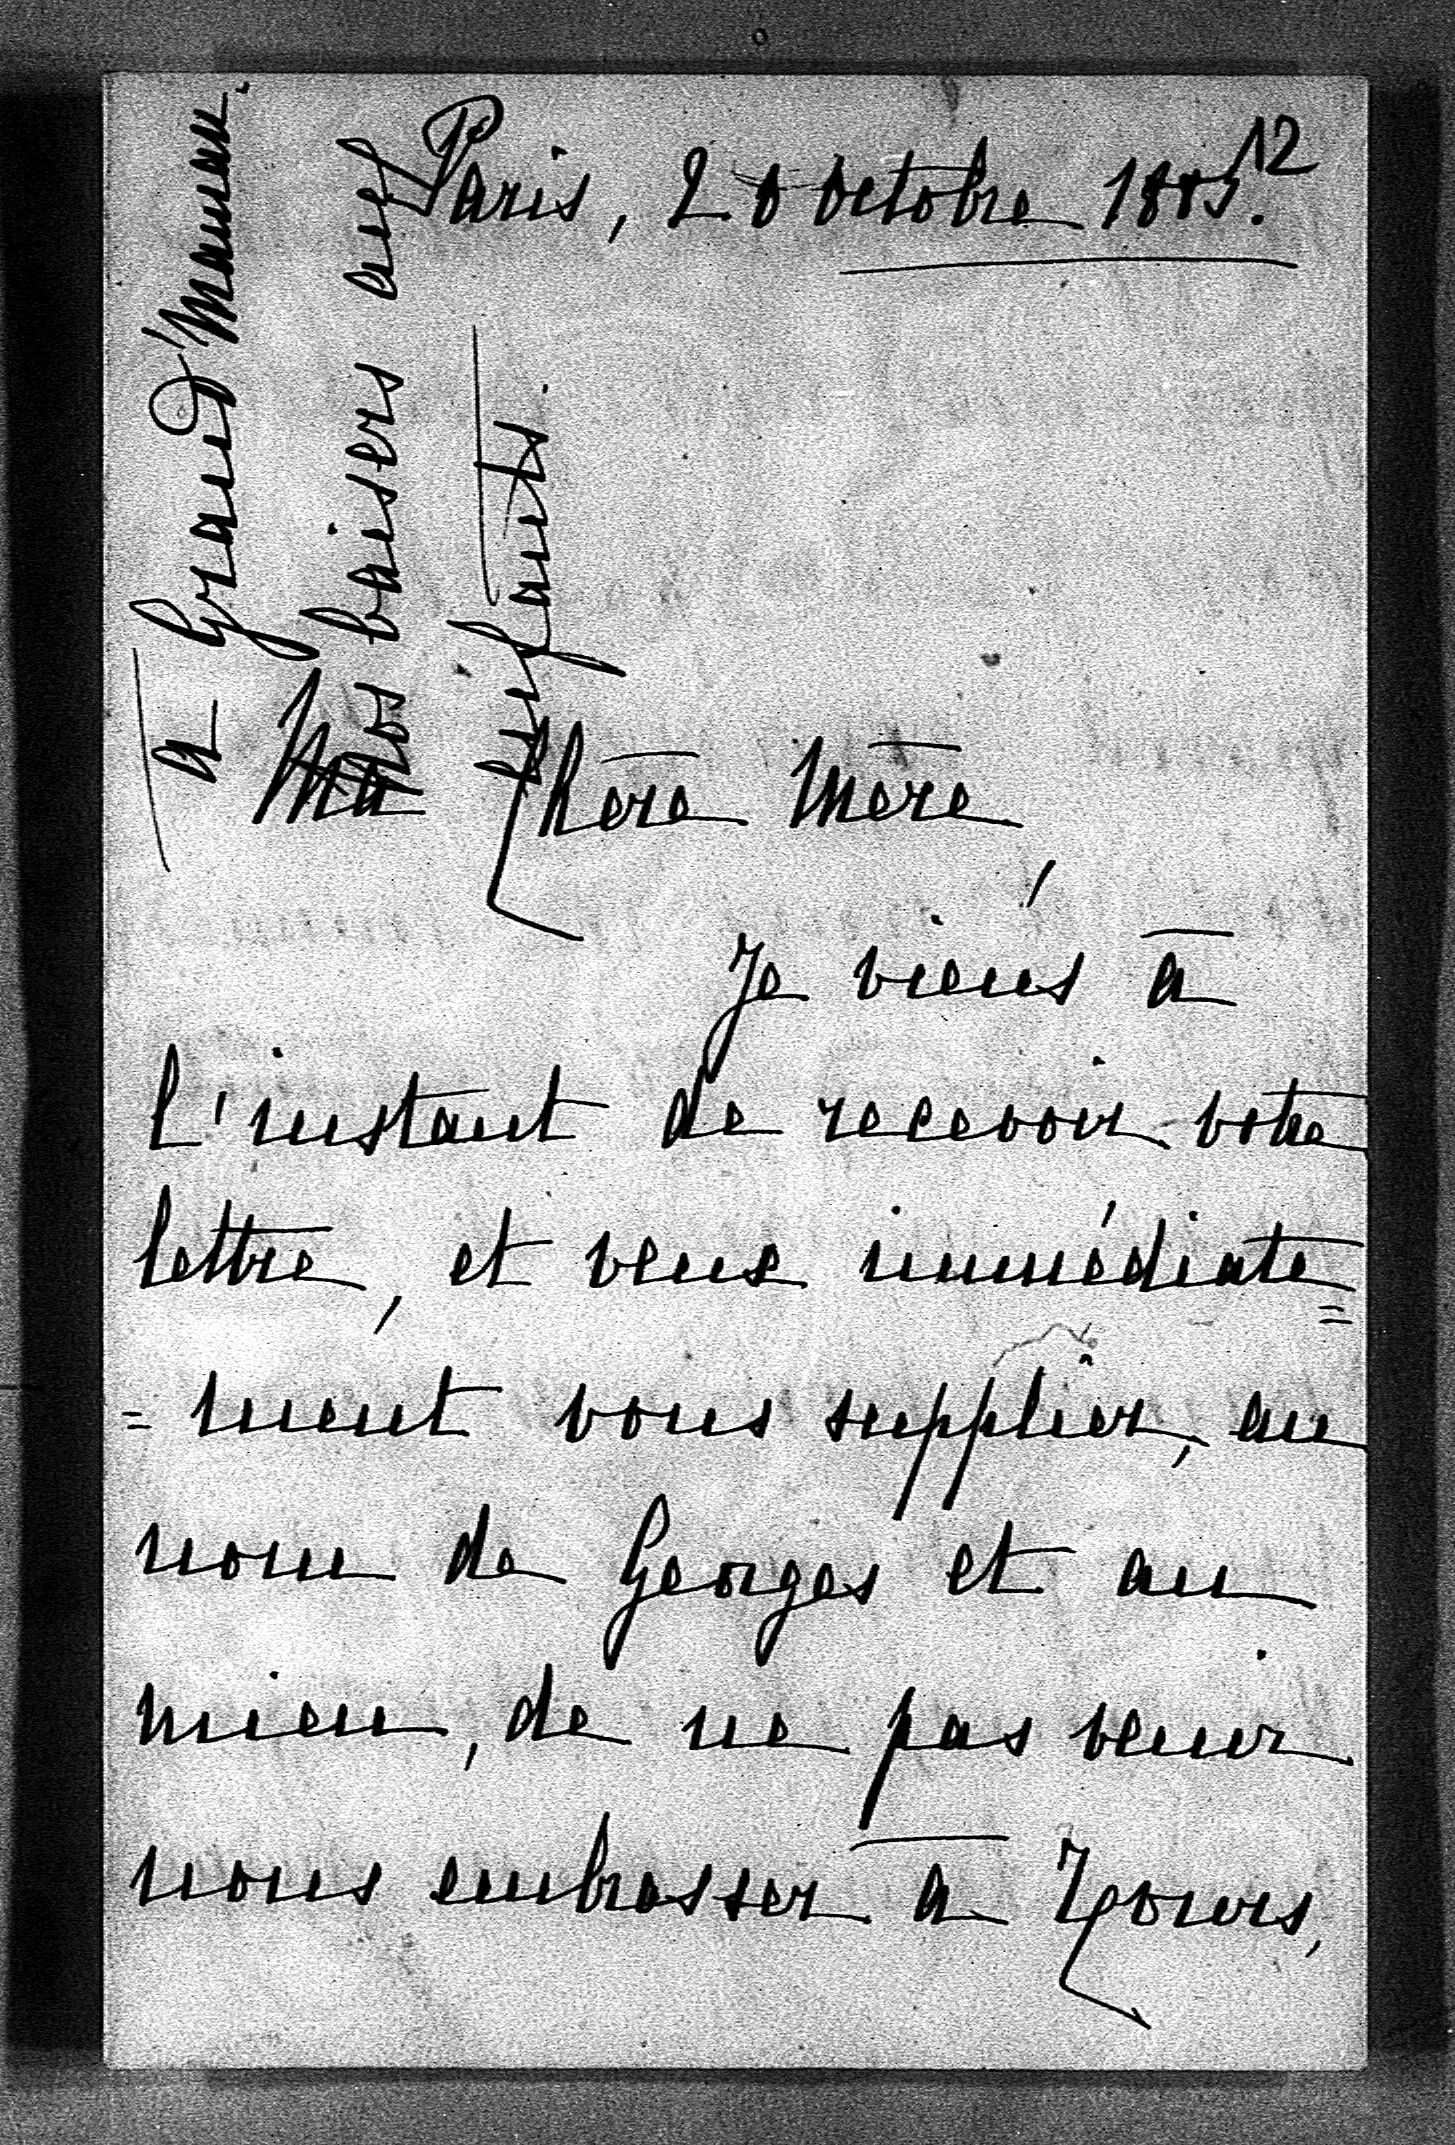 12
Paris, 26 octobre 1885.
Ma chère Mère,
Je viens à
l'instant de recevoir votre
lettre, et veux immédiate=
=ment vous supplier, au
nom de Georges et au
mien, de ne pas venir
nous embrasser à Tours,
à Grand'Maman.
Nos baisers aux
enfants.